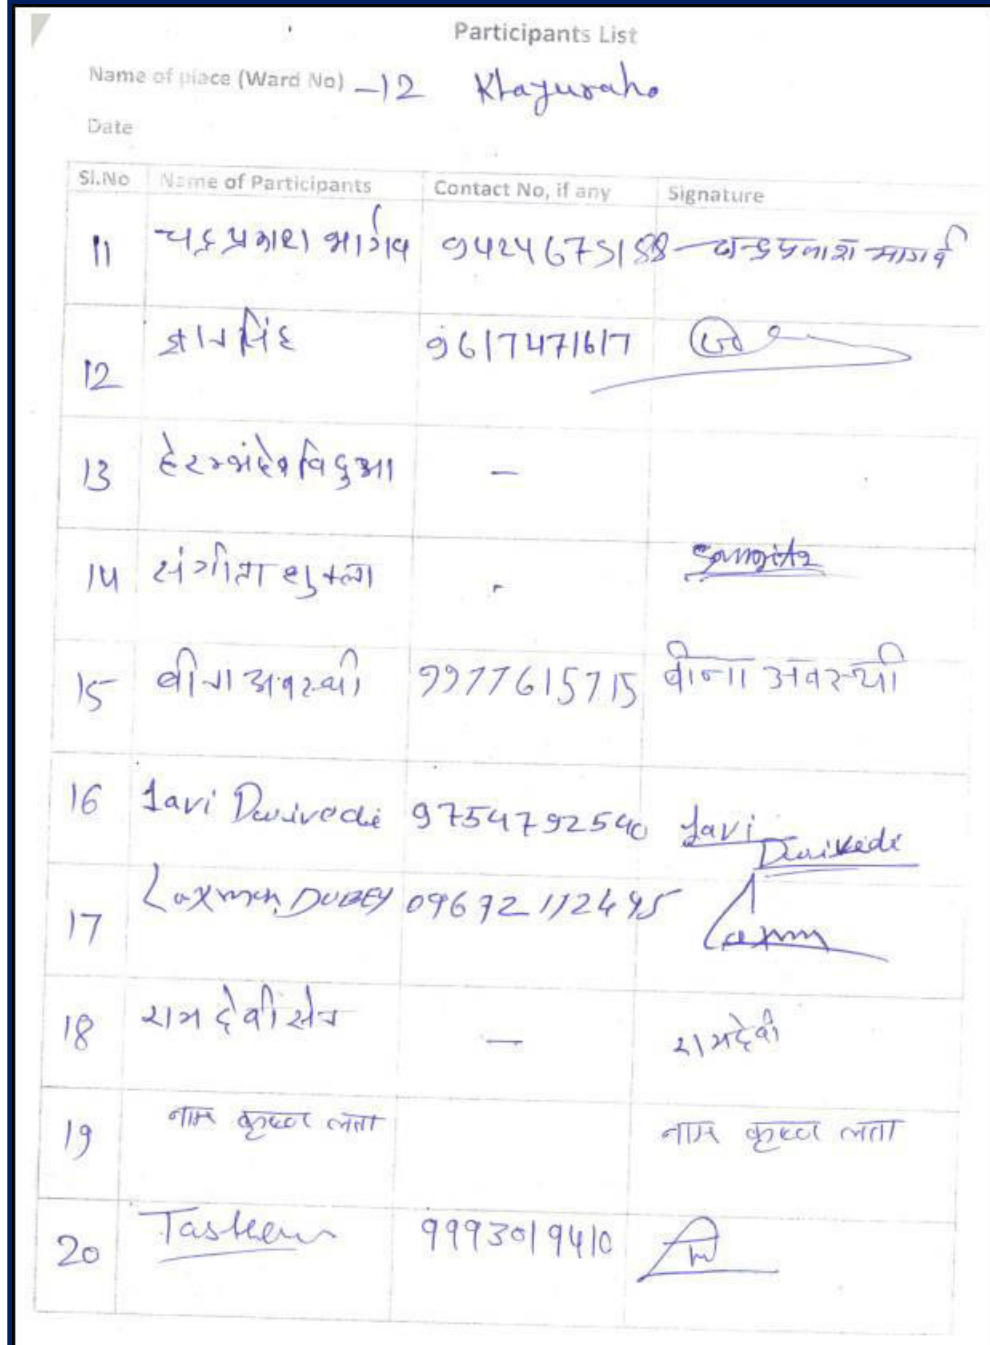 Participants List
Name of place (Ward No) -12 Khajuraho
Date
Sl.No Name of Participants Contact No, if any Signature
11 चन्द्र प्रकाश भार्गव 9424675188 चन्द्रप्रकाश भार्गव
12 ज्ञान सिंह 9617471617
13 विदुआ -
14 संगीता शुक्ला - Sangita
15 वीना अवस्थी 9977615715 वीना अवस्थी
16 Javi Dwivedi 9754792540 Javi Dwivedi
17 Laxman DUBEY 09692112495 Laxmn
18 राम देवी सेन - रामदेवी
19 नाम कृष्ण लता नाम कृष्ण लता
20 Taskeen 9993019410